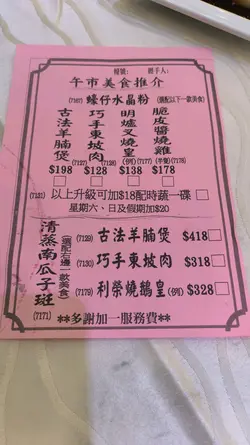 檯號： 經手人：
午市美食推介
(7167) 蠔仔水晶粉 (選配以下一款美食)
古法羊腩煲 $198
巧手東坡肉 (7128) $128
明爐叉燒皇 (例) (7177) $138
脆皮醬燒雞 (半隻) (7178) $178
(7132) 以上升級可加$18配時蔬一碟
星期六、日及假期加$20
清蒸南瓜子斑 (選配右邊一款美食) (7171)
(7129) 古法羊腩煲 $418
(7130) 巧手東坡肉 $318
(7179) 利榮燒鵝皇 (例) $328
**多謝加一服務費**